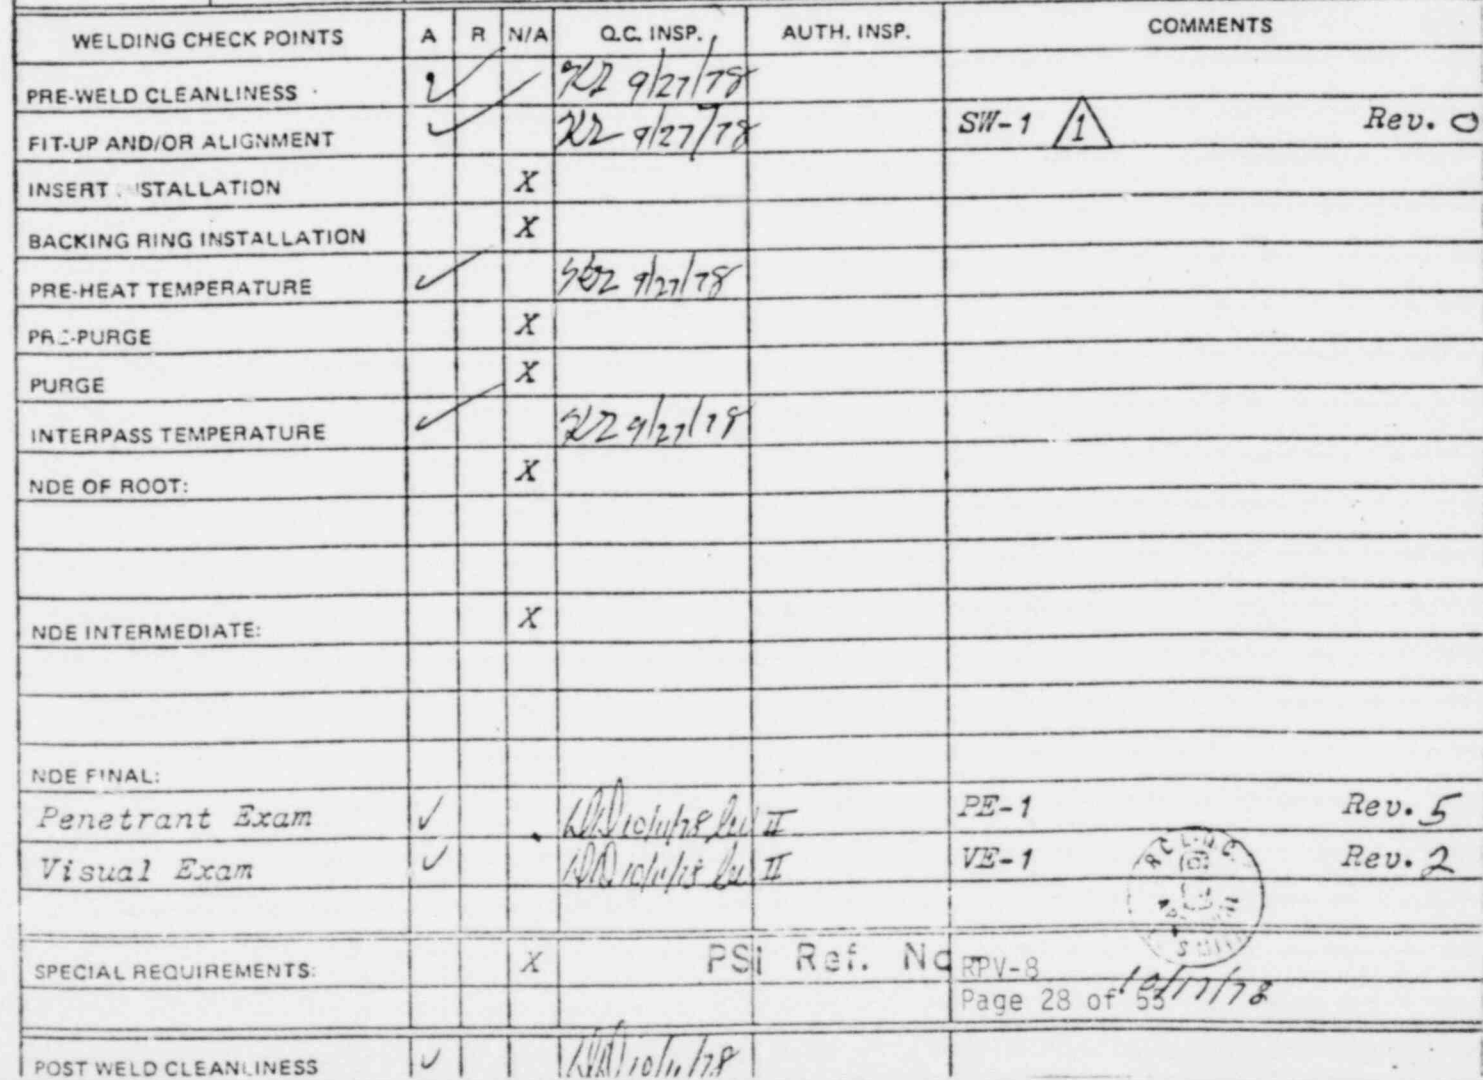 WELDING CHECK POINTS A R N/A Q.C. INSP. AUTH. INSP. COMMENTS
PRE-WELD CLEANLINESS ✓ 9/27/78
FIT-UP AND/OR ALIGNMENT ✓ 9/27/78 SW-1 1 Rev. 0
INSERT INSTALLATION X
BACKING RING INSTALLATION X
PRE-HEAT TEMPERATURE ✓ 9/27/78
PRE-PURGE X
PURGE X
INTERPASS TEMPERATURE ✓ 9/27/78
NDE OF ROOT: X
NDE INTERMEDIATE: X
NDE FINAL:
Penetrant Exam ✓ 10/11/78 II PE-1 Rev. 5
Visual Exam ✓ 10/11/78 II VE-1 Rev. 2
SPECIAL REQUIREMENTS: X PSI Ref. No RPV-8
Page 28 of 53 10/17/78
POST WELD CLEANLINESS ✓ 10/11/78